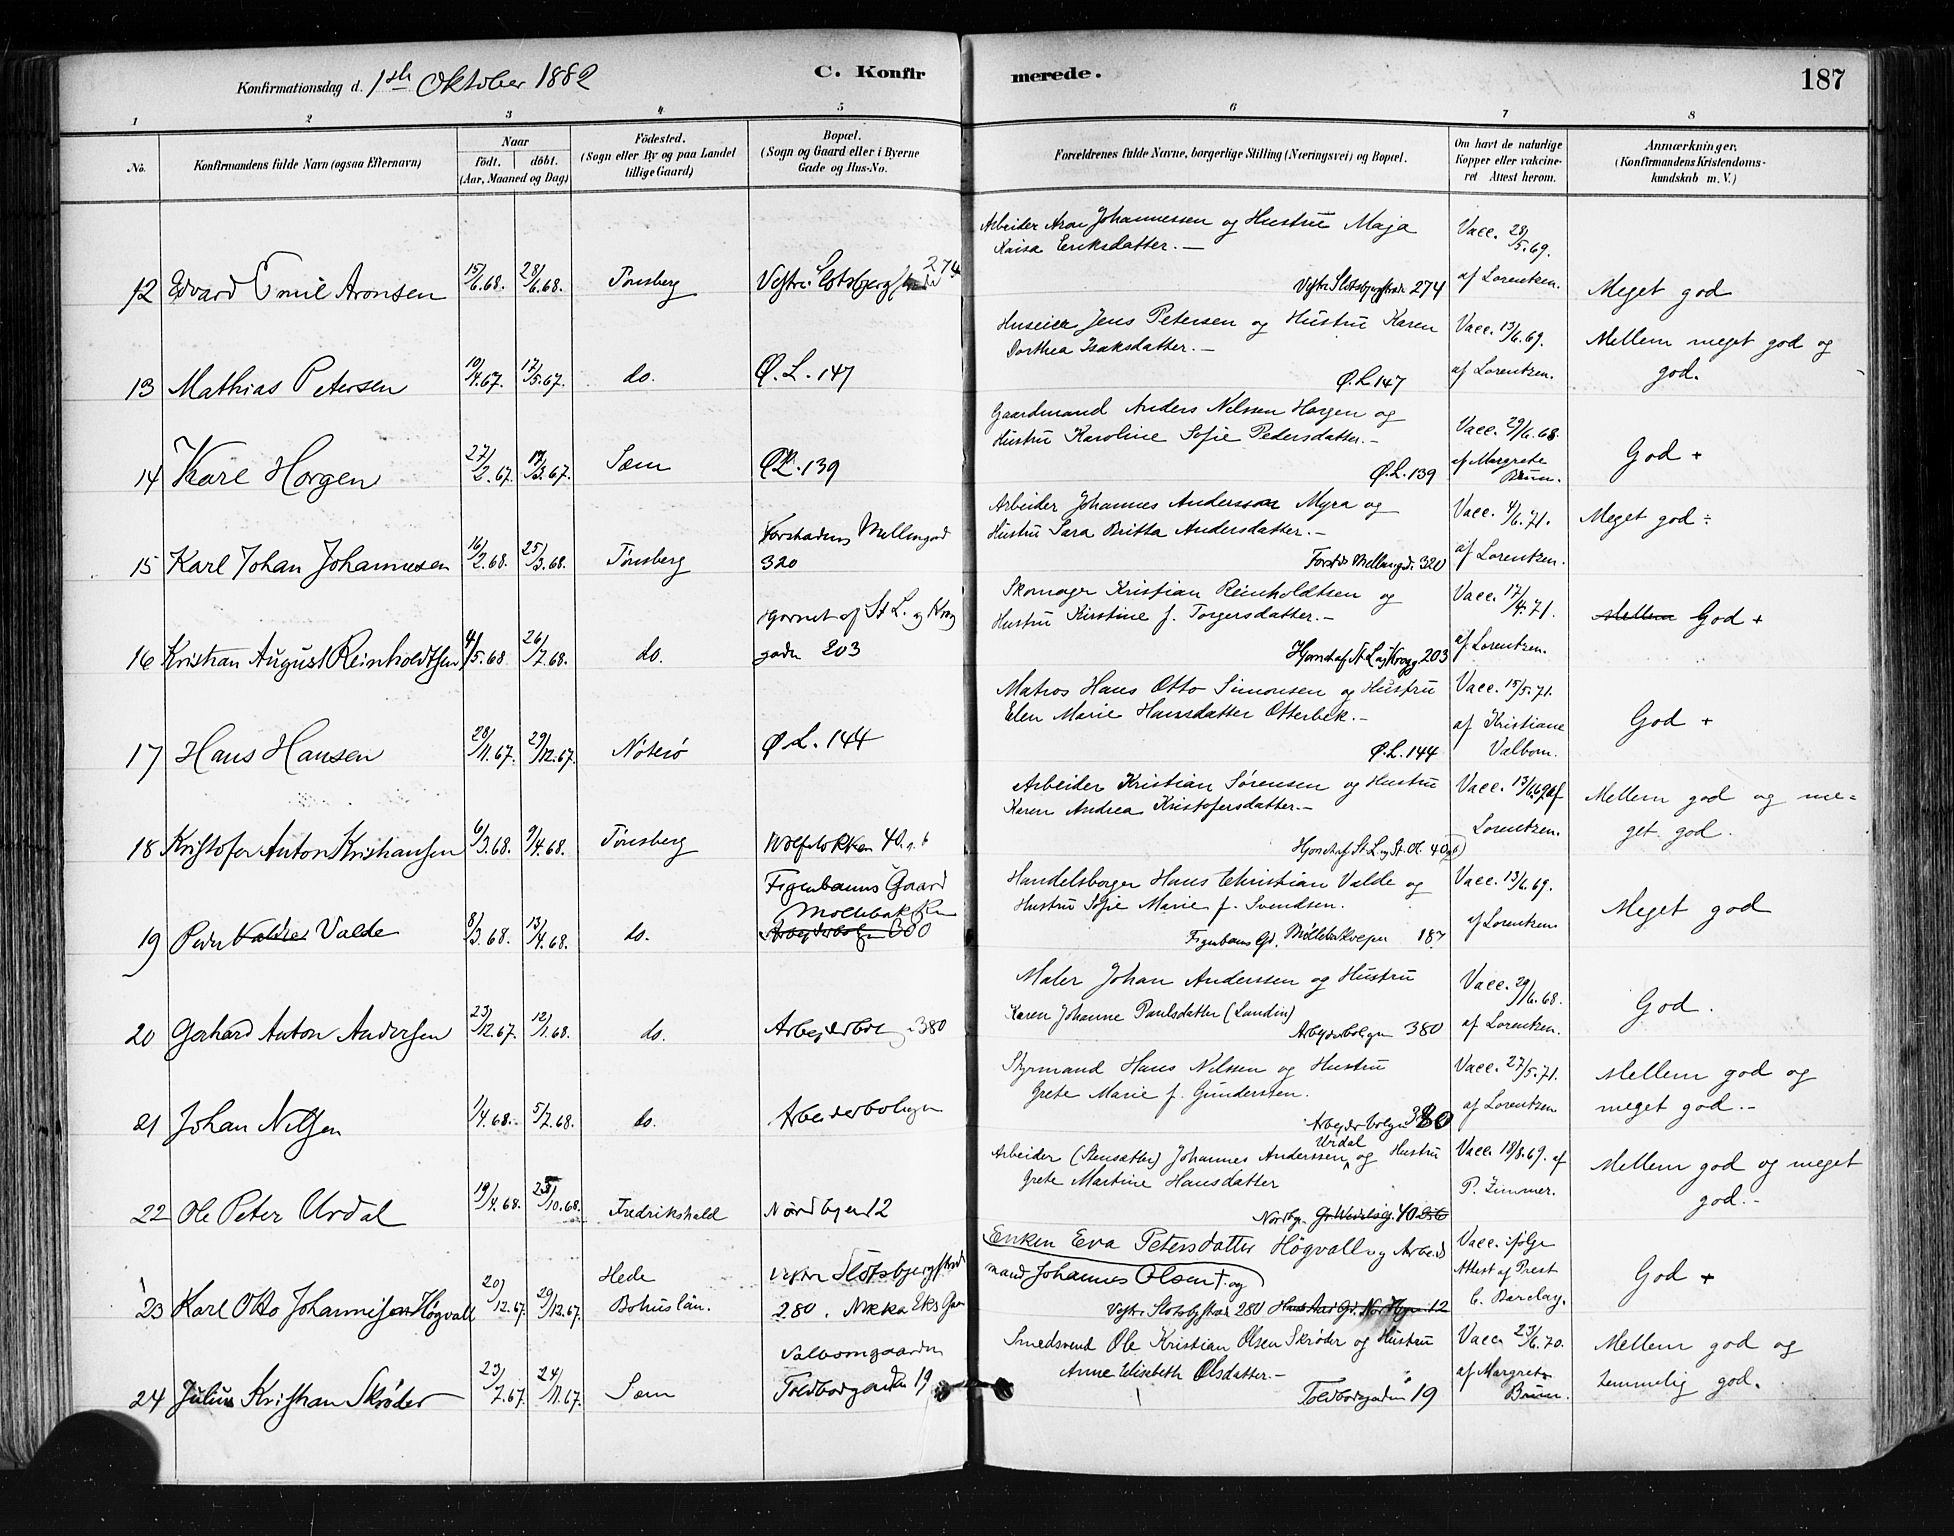 Konfirmationsdag d. 1ste Oktober 1882
C. Konfirmerede.
187
1 2 3 4 5 6 7 8
No.
Konfirmandens fulde Navn (ogsaa Efternavn)
Naar
födt. döbt.
(Aar, Maaned og Dag)
Födested.
(Sogn eller By og paa Landet
tillige Gaard)
Bopæl.
(Sogn og Gaard eller i Byerne
Gade og Hus-No.
Forældrenes fulde Navne, borgerlige Stilling (Næringsvei) og Bopæl.
Om havt de naturlige
Kopper eller vakcine-
ret Attest herom.
Anmærkninger,
(Konfirmandens Kristendoms-
kundskab m. V.)
Arbeider Aron Johannessen og Hustru Maja
Kaisa Eriksdatter. —
Vacc. 28/5.69.
12 Edvard Emil Aronsen 15/6.68. 28/6.68. Tønsberg Vestre Slotsbergstræde 274
Vestr. Slotsbergstræde 274 af Lorentzen. Meget god
Huseier Jens Petersen og Hustru Karen
Dorthea Isaksdatter. —
Vacc. 13/6.69. Mellem meget god og
13 Mathias Petersen 10/4.67. 17/5.67. do. Ø. L. 147
Ø. L. 147 af Lorentzen. god.
Gaardmand Anders Nilssen Horgen og
Hustru Karoline Sofie Pedersdatter. —
Vacc. 29/6.68.
14 Karl Horgen 27/2.67. 17/3.67. Sem Ø.L. 139
Ø. L. 139 af Margrete Bruun. God +
Arbeider Johannes Andersson Myra og
Hustru Sara Britta Andersdatter. —
Vacc. 4/6.71. Meget god ÷
15 Karl Johan Johannesen 16/2.68. 25/3.68. Tønsberg Forstadens Mellemgad
320
Forstds Mellemgd. 320 af Lorentzen.
Skomager Kristian Reinholdtsen og
Hustru Kirstine f. Torgersdatter. —
Vacc. 17/4.71. Mellem God +
16 Kristian August Reinholdtsen 4/5.68 26/7.68. do. Hjørnet af St L. og Krog
gaden 203
Hjørnet af St L og Krogg. 203 af Lorentzen.
Matros Hans Otto Simonsen og Hustru
Elen Marie Hansdatter Otterbek. —
Vacc. 15/5.71.
17 Hans Hansen 28/11.67. 29/12.67. Nøterø Ø.L. 144
Ø.L. 144 af Kristiane Valbom. God +
Arbeider Kristian Sørensen og Hustru
Karen Andrea Kristofersdatter. —
Vacc. 13/6.69 af Mellem god og me-
18 Kristofer Anton Kristiansen 6/3.68. 9/4.68. Tønsberg Wolfeløkken 40. b
Hjørnet af St. L og St. Ol. 40 b Lorentzen. get god.
Handelsborger Hans Christian Valde og
Hustru Sofie Marie f. Svendsen.
Vacc. 13/6.69.
19 Peder Valde 8/3.68. 13/4.68. do. Figenbaums Gaard
Møllebakken
Arbejderbolgn 000
Figenbaums Gd. Møllebakvejen 187 af Lorentzen Meget god
Maler Johan Anderssen og Hustru
Karen Johanne Paulsdatter (Lundin)
Vacc. 29/6.68.
20 Gerhard Anton Andersen 23/12.67. 12/1.68. do. Arbejderbol 380
Arbejderboligen 380 af Lorentzen. God.
Styrmand Hans Nilssen og Hustru
Grete Marie f. Gunderssen.
Vacc. 27/5.71. Mellem god og
21 Johan Nilsen 1/4.68. 5/7.68. do. Arbeiderboligen
Arbejderbolgn 380 af Lorentzen meget god. —
Arbeider (Stensætter) Johannes Anderssen Urdal og Hustru
Grete Martine Hansdatter
Vacc. 18/8.69. af Mellem god og meget
22 Ole Peter Urdal 19/4.68. 25/10.68. Fredrikshald Nordbyen 12
Nordby. Gr. Wedelsg. 40 256 P. Zimmer. god. —
Enken Eva Petersdatter Högvall og Arbeids
mand Johannes Olsen † og
Vacc. ifølge
Attest af Prest
C. Barclay.
23 Karl Otto Johannisson Högvall 20/12.67. 29/12.67. Hede
Bohuslän. Vestre Slotsbjergstræde
280. Nække Eks Gaar
Vestr. Slotsbgstræd 280 Hans Aas Gd. Nordbyen 12 God +
Smedsvend Ole Kristian Olsen Skrøder og Hustru
Anne Elisebeth Olsdatter. —
Vacc. 23/6.70. Mellem god og
24 Julius Kristian Skrøder 23/7.67. 24/11.67. Sem Valbomgaarden
Toldbodgaden 19
Toldbodgaden 19 af Margrete Bruun. temmelig god.